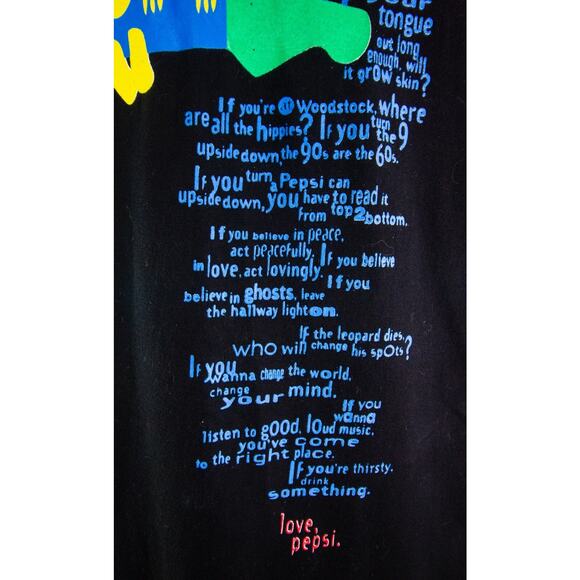 your
tongue
out long
enough, will
it grow skin?
If you're @ Woodstock, where
are all the hippies? If you turn the 9
upside down, the 90s are the 60s.
If you turn a Pepsi can
upside down, you have to read it
from top 2 bottom.
If you believe in peace,
act peacefully. If you believe
in love, act lovingly. If you
believe in ghosts, leave
the hallway light on.
If the leopard dies,
who will change his spots?
If you wanna change the world,
change your mind.
If you wanna
listen to good, loud music,
you've come
to the right place.
If you're thirsty,
drink
something.
love,
pepsi.